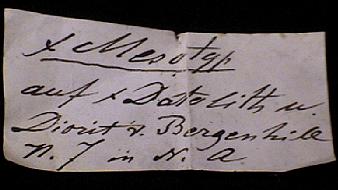 x Mesotyp
auf x Datolith u.
Diorit v. Bergenhill
N. J in N. A